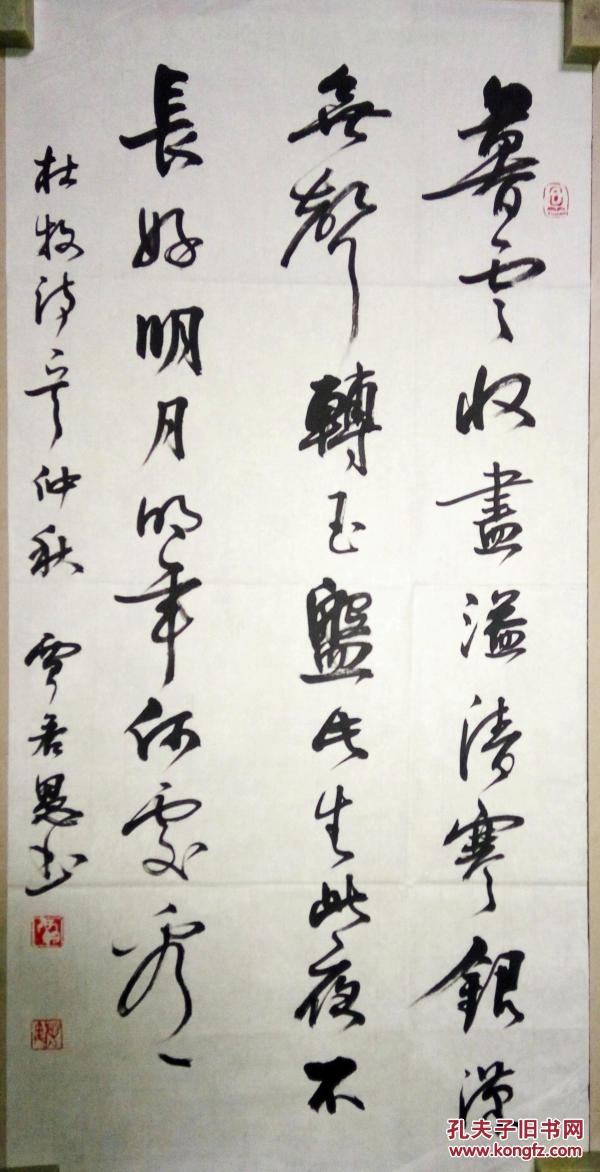 暮雲收盡溢清寒銀漢
無聲轉玉盤此生此夜不
長好明月明年何處看
杜牧詩 仲秋 賈君恩书
孔夫子旧书网
www.kongfz.com